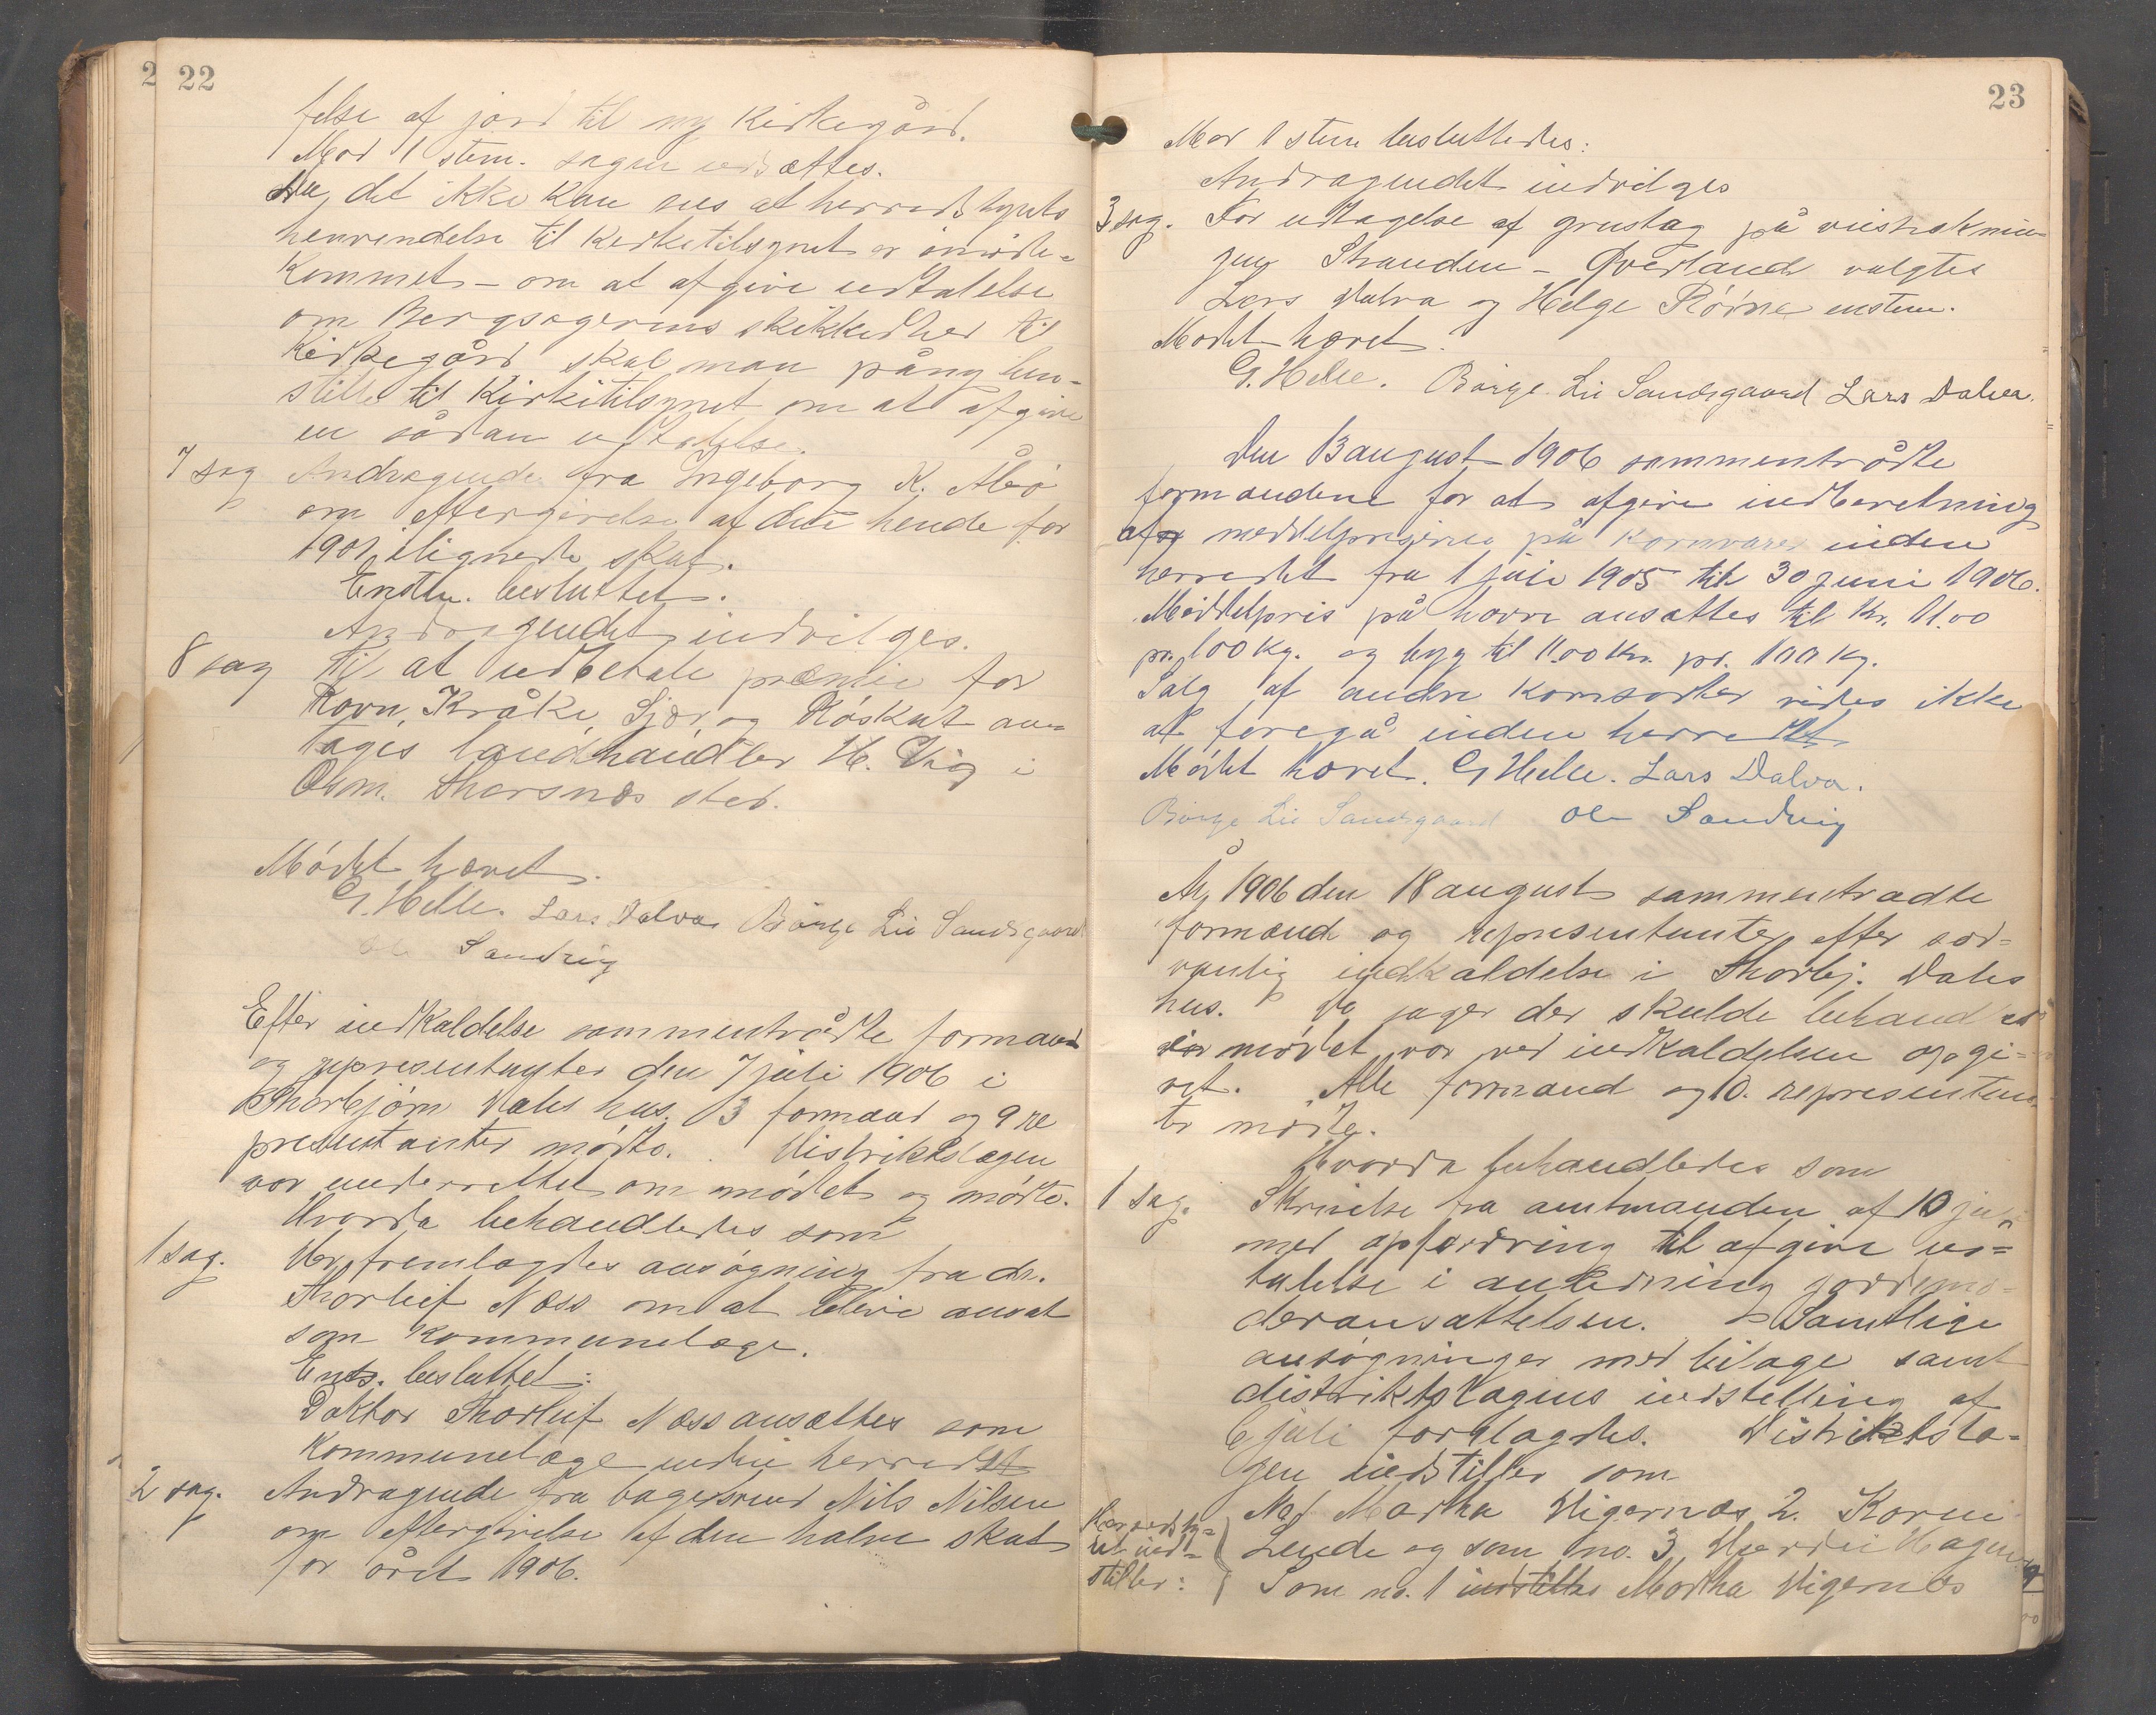 22
felse af jord til ny kirkegård.
Mod 1 stem. sagen udsættes.
Da det ikke kan sees at herredstyrets
henvendelse til kirketilsynet er imøde-
kommet - om at afgive udtalelse
om Bergsagerens skikkedhed til
kirkegård skal man påny hen-
stille til kirketilsynet om at afgive
en sådan udtalelse.
7 sag Andragende fra Ingeborg K. Åbø
om eftergivelse af den hende for
1901 ilignede skat.
Enstm. besluttet.
Andragendet indvilges.
8 sag Til at udbetale præmie for
Ravn, Kråke, Sjor og Nøskut an-
tages landhandler H. Vig i
Osm. Thorsnæs sted.
Mødet hævet.
G. Helle. Lars Dalva Børge Lie Sandsgaard
Ole Sandvig
Efter indkaldelse sammentrådte formænd
og representanter den 7 juli 1906 i
Thorbjørn Dales hus. 3 formænd og 9 re
presentanter mødte. Distriktslægen
var underrettet om mødet og mødte.
Hvorda behandledes som
1 sag. Der fremlagdes ansøgning fra dr.
Thorleif Næss om at blive ansat
som kommunelæge.
Ens. besluttet:
Doktor Thorleif Næss ansættes som
kommunelæge inden herredet
2 sag. Andragende fra bagersvend Nils Nilsen
om eftergivelse af den halve skat
for året 1906.
23
Mod 1 stem besluttedes:
Andragendet indvilges
3 sag. For udtagelse af grustag på veistræknin-
gen Stranden - Øverland valgtes
Lars Dalva og Helge Rørne enstem.
Mødet hævet.
G. Helle. Børge Lie Sandsgaard Lars Dalva.
Den 13 august 1906 sammentrådte
formændene for at afgive indberetning
af middelpriserne på kornvarer inden
herredet fra 1 juli 1905 til 30 juni 1906.
Middelpris på havre ansættes til Kr. 11.00
pr. 100 Kg. og byg til 11.00 Kr. pr. 100 Kg.
Salg af andre kornsorter vides ikke
at foregå inden herredet
Mødet hævet. G Helle. Lars Dalva.
Børge Lie Sandsgaard Ole Sandvig
År 1906 den 18 august sammentrådte
formænd og representanter efter sæd-
vanlig indkaldelse i Thorbj. Dales
hus. De sager der skulde behandles
på mødet var ved indkaldelsen opgi-
vet. Alle formænd og 10. representan-
ter mødte.
Hvorda behandledes som
1 sag. Skrivelse fra amtmanden af 10 juli
med opfordring til afgive ud-
talelse i anledning jordemo-
deransættelsen. Samtlige
ansøgninger med bilage samt
distriktslægens indstilling af
6 juli forelagdes. Distriktslæ-
gen indstiller som
No 1 Martha Vigernæs 2. Karen
Lende og som no. 3 Hagen
Herredsty-
ret ind-
stiller:
Som no. 1 indstilles Martha Vigernæs